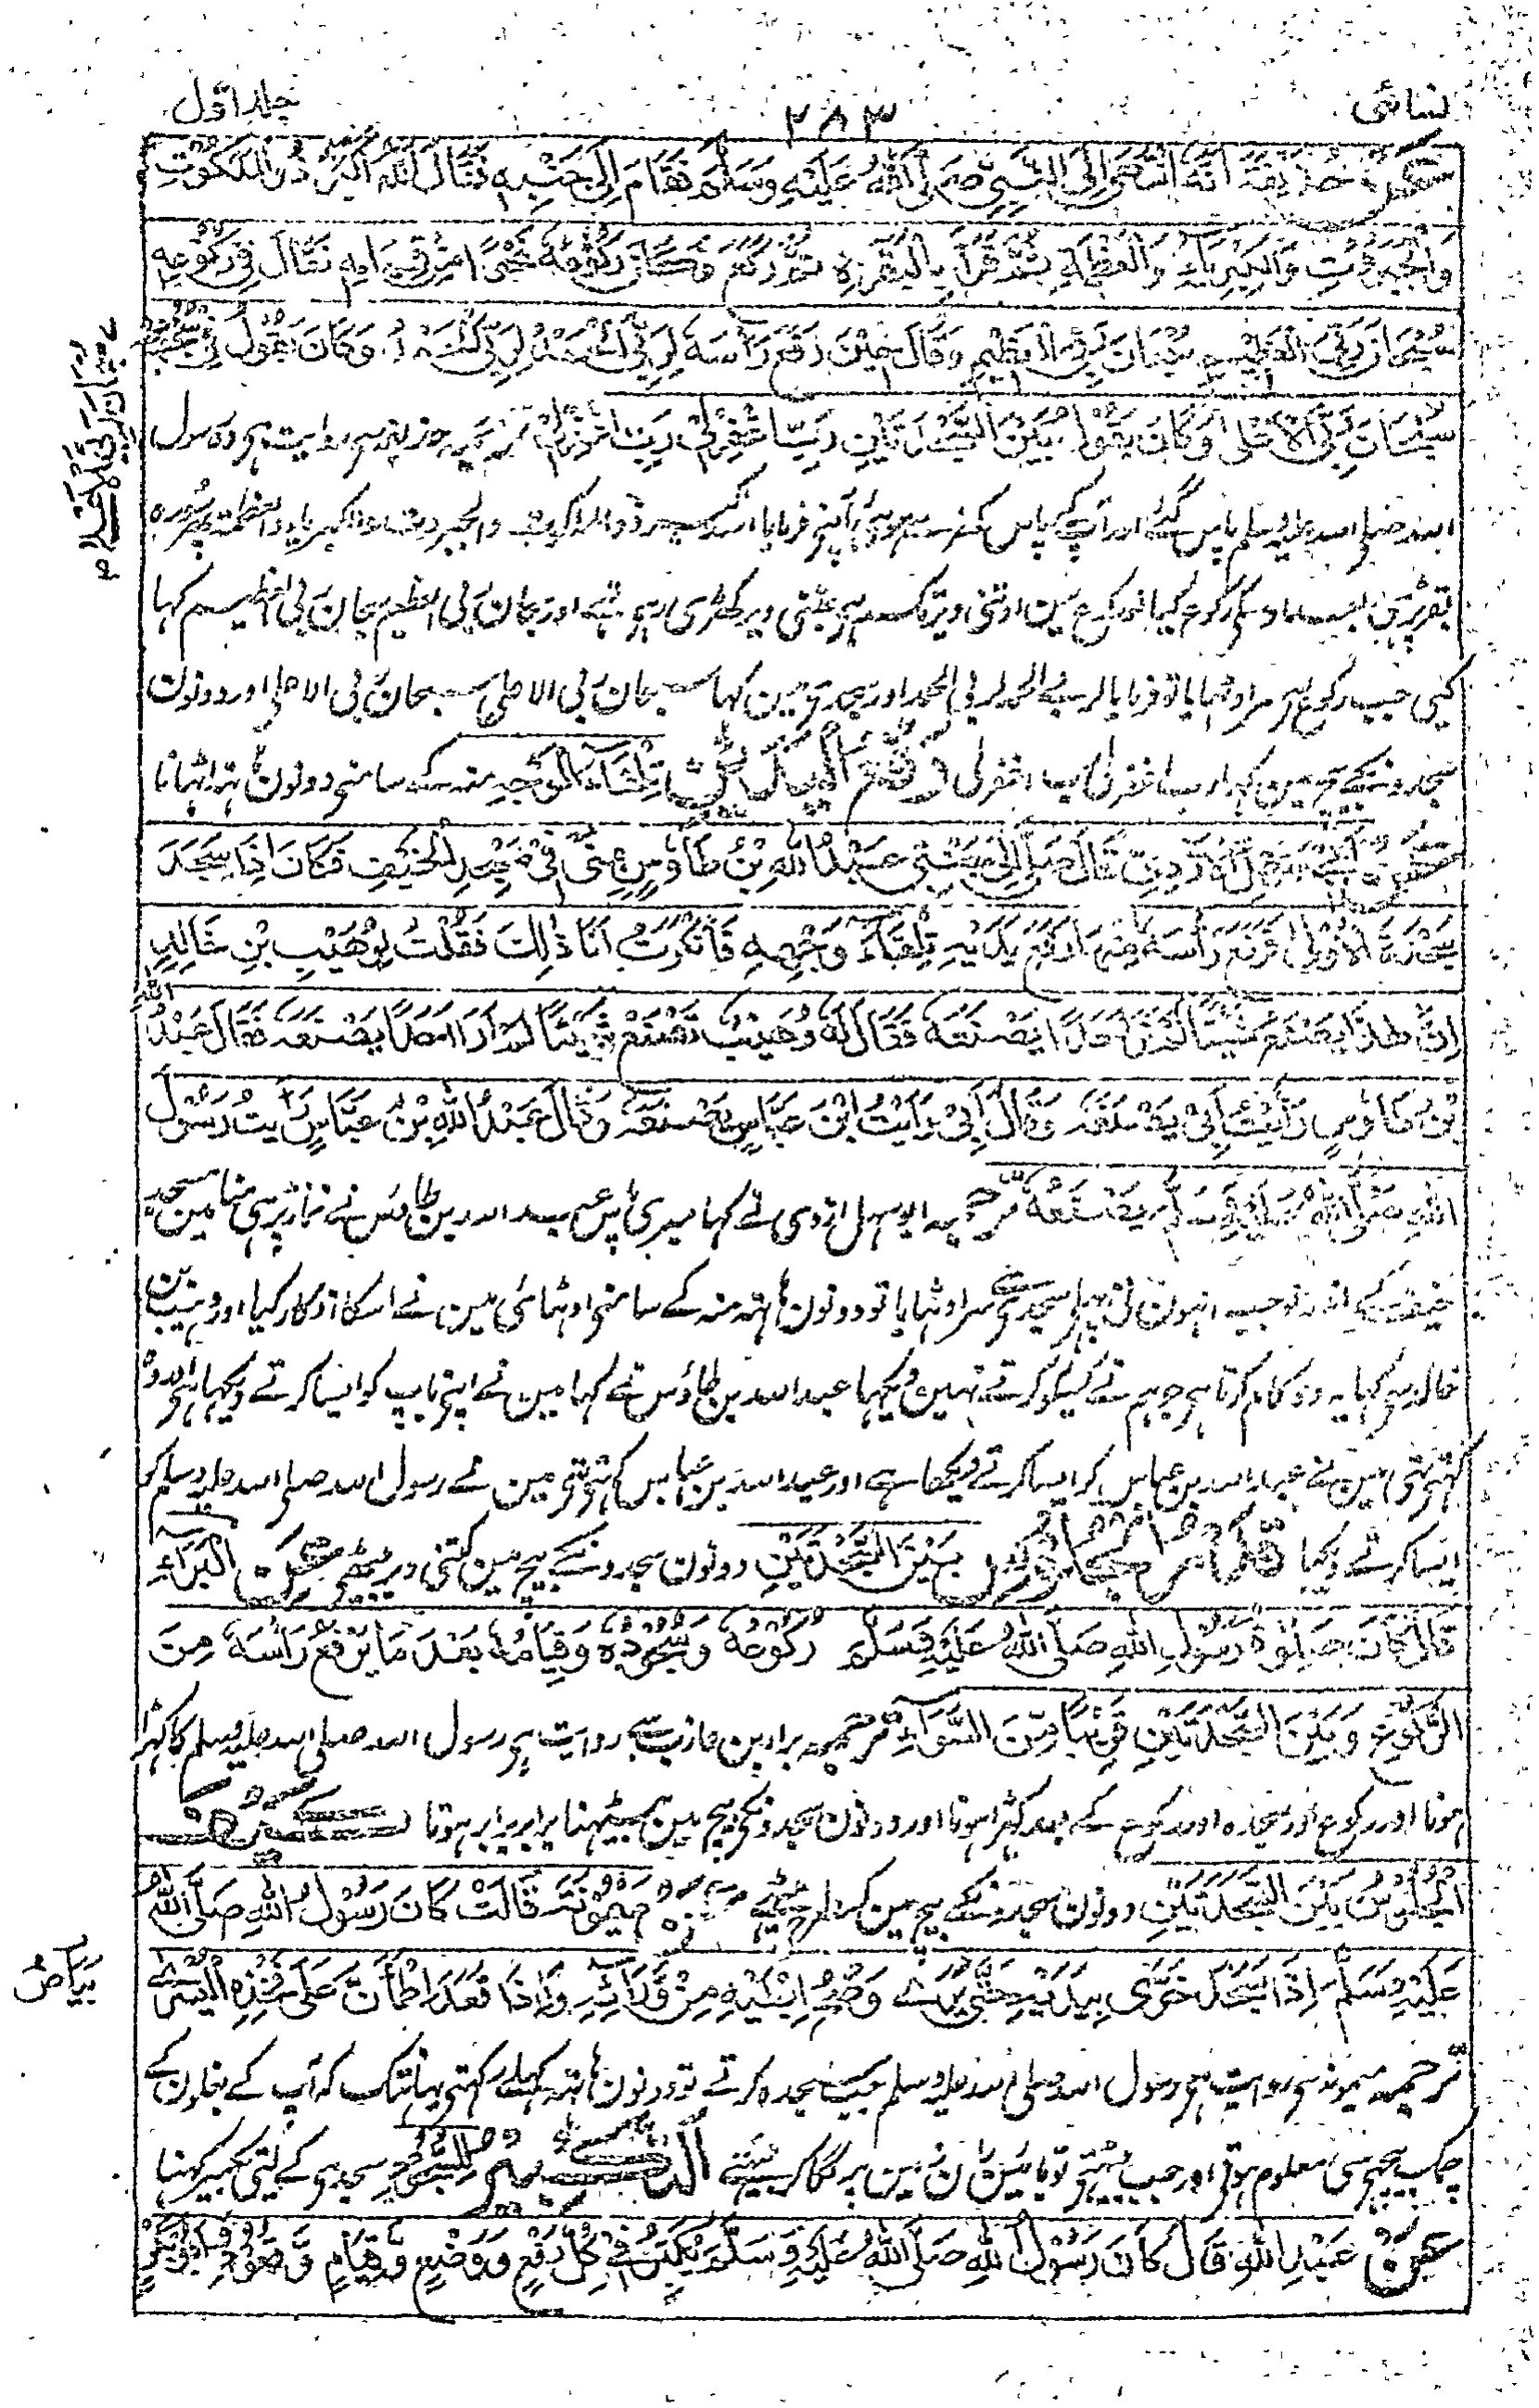 نسائی ۲۸۳ جلد اول
عَنْ حُذَيْفَةَ اَنَّهُ انْتَهٰى اِلَى النَّبِيِّ صَلَّى اللّٰهُ عَلَيْهِ وَسَلَّمَ فَقَامَ اِلٰى جَنْبِهٖ فَقَالَ اللّٰهُ اَكْبَرُ ذُو الْمَلَكُوْتِ
وَالْجَبَرُوْتِ وَالْكِبْرِيَاءِ وَالْعَظَمَةِ ثُمَّ قَرَأَ بِالْبَقَرَةِ ثُمَّ رَكَعَ وَكَانَ رُكُوْعُهٗ نَحْوًا مِّنْ قِيَامِهٖ فَقَالَ فِيْ رُكُوْعِهٖ
سُبْحَانَ رَبِّيَ الْعَظِيْمِ سُبْحَانَ رَبِّيَ الْعَظِيْمِ وَقَالَ حِيْنَ رَفَعَ رَأْسَهٗ لِرَبِّيَ الْحَمْدُ لِرَبِّيَ الْحَمْدُ وَكَانَ يَقُوْلُ فِيْ سُجُوْدِهٖ
سُبْحَانَ رَبِّيَ الْاَعْلٰى وَكَانَ يَقُوْلُ بَيْنَ السَّجْدَتَيْنِ رَبِّ اغْفِرْ لِيْ رَبِّ اغْفِرْ لِيْ ترجمہ حذیفہ سے روایت ہی وہ رسول
سُبْحَانَ رَبِّيَ الْاَعْلٰى
اللہ صلی اللہ علیہ وسلم پاس گئے اور آپ کے پاس کھڑے ہوئے آپنے فرمایا اللہ اکبر ذو الملکوت والجبروت والکبریاء والعظمۃ پھر سورہ
بقر پڑھی بعد اوسکے رکوع کیا اور رکوع مین اوتنی دیر تک رہے جتنی دیر کھڑی رہے تہے اور سبحان ربی العظیم سبحان ربی العظیم کہا
کئے جب رکوع سے سر اوٹہایا تو فرمایا لربی الحمد لربی الحمد اور سجدے مین کہا سبحان ربی الاعلی سبحان ربی الاعلی اور دونون
سجدونکے بیچ مین کہا رب اغفرلی رب اغفرلی رَفْعُ الْيَدَيْنِ تِلْقَاءَ الْوَجْهِ منہ کے سامنے دونون ہاتہ اٹہانا
عَنْ اَبِيْ سَهْلِ الْاَزْدِيِّ قَالَ صَلّٰى اِلٰى جَنْبِيْ عَبْدُ اللّٰهِ بْنُ طَاوٗسٍ بِمِنًى فِيْ مَسْجِدِ الْخَيْفِ فَكَانَ اِذَا سَجَدَ
سَجْدَةَ الْاُوْلٰى فَرَفَعَ رَأْسَهٗ مِنْهَا رَفَعَ يَدَيْهِ تِلْقَاءَ وَجْهِهٖ فَاَنْكَرْتُ اَنَا ذٰلِكَ فَقُلْتُ لِوُهَيْبِ بْنِ خَالِدٍ
اِنَّ هٰذَا يَصْنَعُ شَيْئًا لَمْ اَرَ اَحَدًا يَصْنَعُهٗ فَقَالَ لَهٗ وُهَيْبٌ تَصْنَعُ شَيْئًا لَمْ اَرَ اَحَدًا يَصْنَعُهٗ فَقَالَ عَبْدُ اللّٰهِ
بْنُ طَاوٗسٍ رَاَيْتُ اَبِيْ يَصْنَعُهٗ وَقَالَ اَبِيْ رَاَيْتُ ابْنَ عَبَّاسٍ يَصْنَعُهٗ وَقَالَ عَبْدُ اللّٰهِ بْنُ عَبَّاسٍ رَاَيْتُ رَسُوْلَ
اللّٰهِ صَلَّى اللّٰهُ عَلَيْهِ وَسَلَّمَ يَصْنَعُهٗ ترجمہ ابو سہل ازدی نے کہا میری پاس عبد اللہ بن طاؤس نے نماز پڑہی منا مین مسجد
خیف کے اندر تو جب انہون نی پہلے سجدے سے سر اوٹہایا تو دونون ہاتہ منہ کے سامنی اوٹہائی مین نے اسکا انکار کیا اور وہیب بن
خالد سے کہا یہ وہ کام کرتا ہی جو ہم نے کسیکو کرتے نہین دیکہا عبد اللہ بن طاؤس نے کہا مین نے اپنے باپ کو ایسا کرتے دیکہا ہے اور وہ
کہتے تہے مین نے عبد اللہ بن عباس کو ایسا کرتے دیکھا ہے اور عبد اللہ بن عباس کہتے تہے مین نے رسول اللہ صلی اللہ علیہ وسلم کو
ایسا کرتے دیکہا قَدْرُ الْجُلُوْسِ بَيْنَ السَّجْدَتَيْنِ دونون سجدونکے بیچ مین کتنی دیر بیٹھے عَنِ الْبَرَاءِ
قَالَ كَانَ صَلٰوةُ رَسُوْلِ اللّٰهِ صَلَّى اللّٰهُ عَلَيْهِ وَسَلَّمَ رُكُوْعُهٗ وَسُجُوْدُهٗ وَقِيَامُهٗ بَعْدَ مَا يَرْفَعُ رَاْسَهٗ مِنَ
الرُّكُوْعِ وَبَيْنَ السَّجْدَتَيْنِ قَرِيْبًا مِّنَ السَّوَاءِ ترجمہ براء بن عازب سے روایت ہے رسول اللہ صلی اللہ علیہ وسلم کا کہڑا
ہونا اور رکوع اور سجدہ اور رکوع کے بعد کہڑا ہونا اور دونون سجدونکے بیچ مین بیٹہنا برابر برابر ہوتا كَيْفَ
الْجُلُوْسُ بَيْنَ السَّجْدَتَيْنِ دونون سجدونکے بیچ مین کس طرح بیٹھے عَنْ مَيْمُوْنَةَ قَالَتْ كَانَ رَسُوْلُ اللّٰهِ صَلَّى اللّٰهُ
عَلَيْهِ وَسَلَّمَ اِذَا سَجَدَ خَوّٰى بِيَدَيْهِ حَتّٰى يُرٰى وَضَحُ اِبْطَيْهِ مِنْ وَّرَائِهٖ وَاِذَا قَعَدَ اطْمَاَنَّ عَلٰى فَخِذِهِ الْيُسْرٰى
بَيَاضُ
ترجمہ میمونہ سے روایت ہے رسول اللہ صلی اللہ علیہ وسلم جب سجدہ کرتے تو دونون ہاتہ کہلے رکہتے یہانتک کہ آپ کے بغلون کے
چمک پیچہے سی معلوم ہوتی اور جب بیٹہتے تو بائین ران زمین پر لگا کر بیٹہتے اَلتَّكْبِيْرُ لِلسُّجُوْدِ سجدہ کے لئے تکبیر کہنا
عَنْ عَبْدِ اللّٰهِ قَالَ كَانَ رَسُوْلُ اللّٰهِ صَلَّى اللّٰهُ عَلَيْهِ وَسَلَّمَ يُكَبِّرُ فِيْ كُلِّ رَفْعٍ وَوَضْعٍ وَقِيَامٍ وَقُعُوْدٍ وَاَبُوْ بَكْرٍ